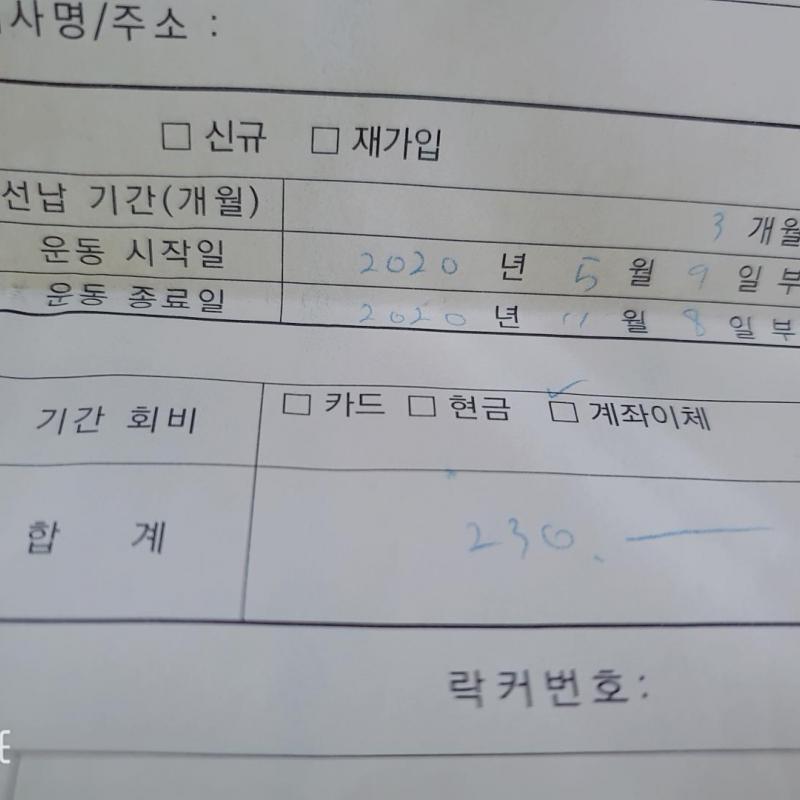 사명/주소 :
□ 신규 □ 재가입
선납 기간(개월) 3 개월
운동 시작일 2020 년 5 월 9 일 부
운동 종료일 2020 년 11 월 8 일 부
기간 회비 □ 카드 □ 현금 ☑ 계좌이체
합 계 230. —
락커번호: